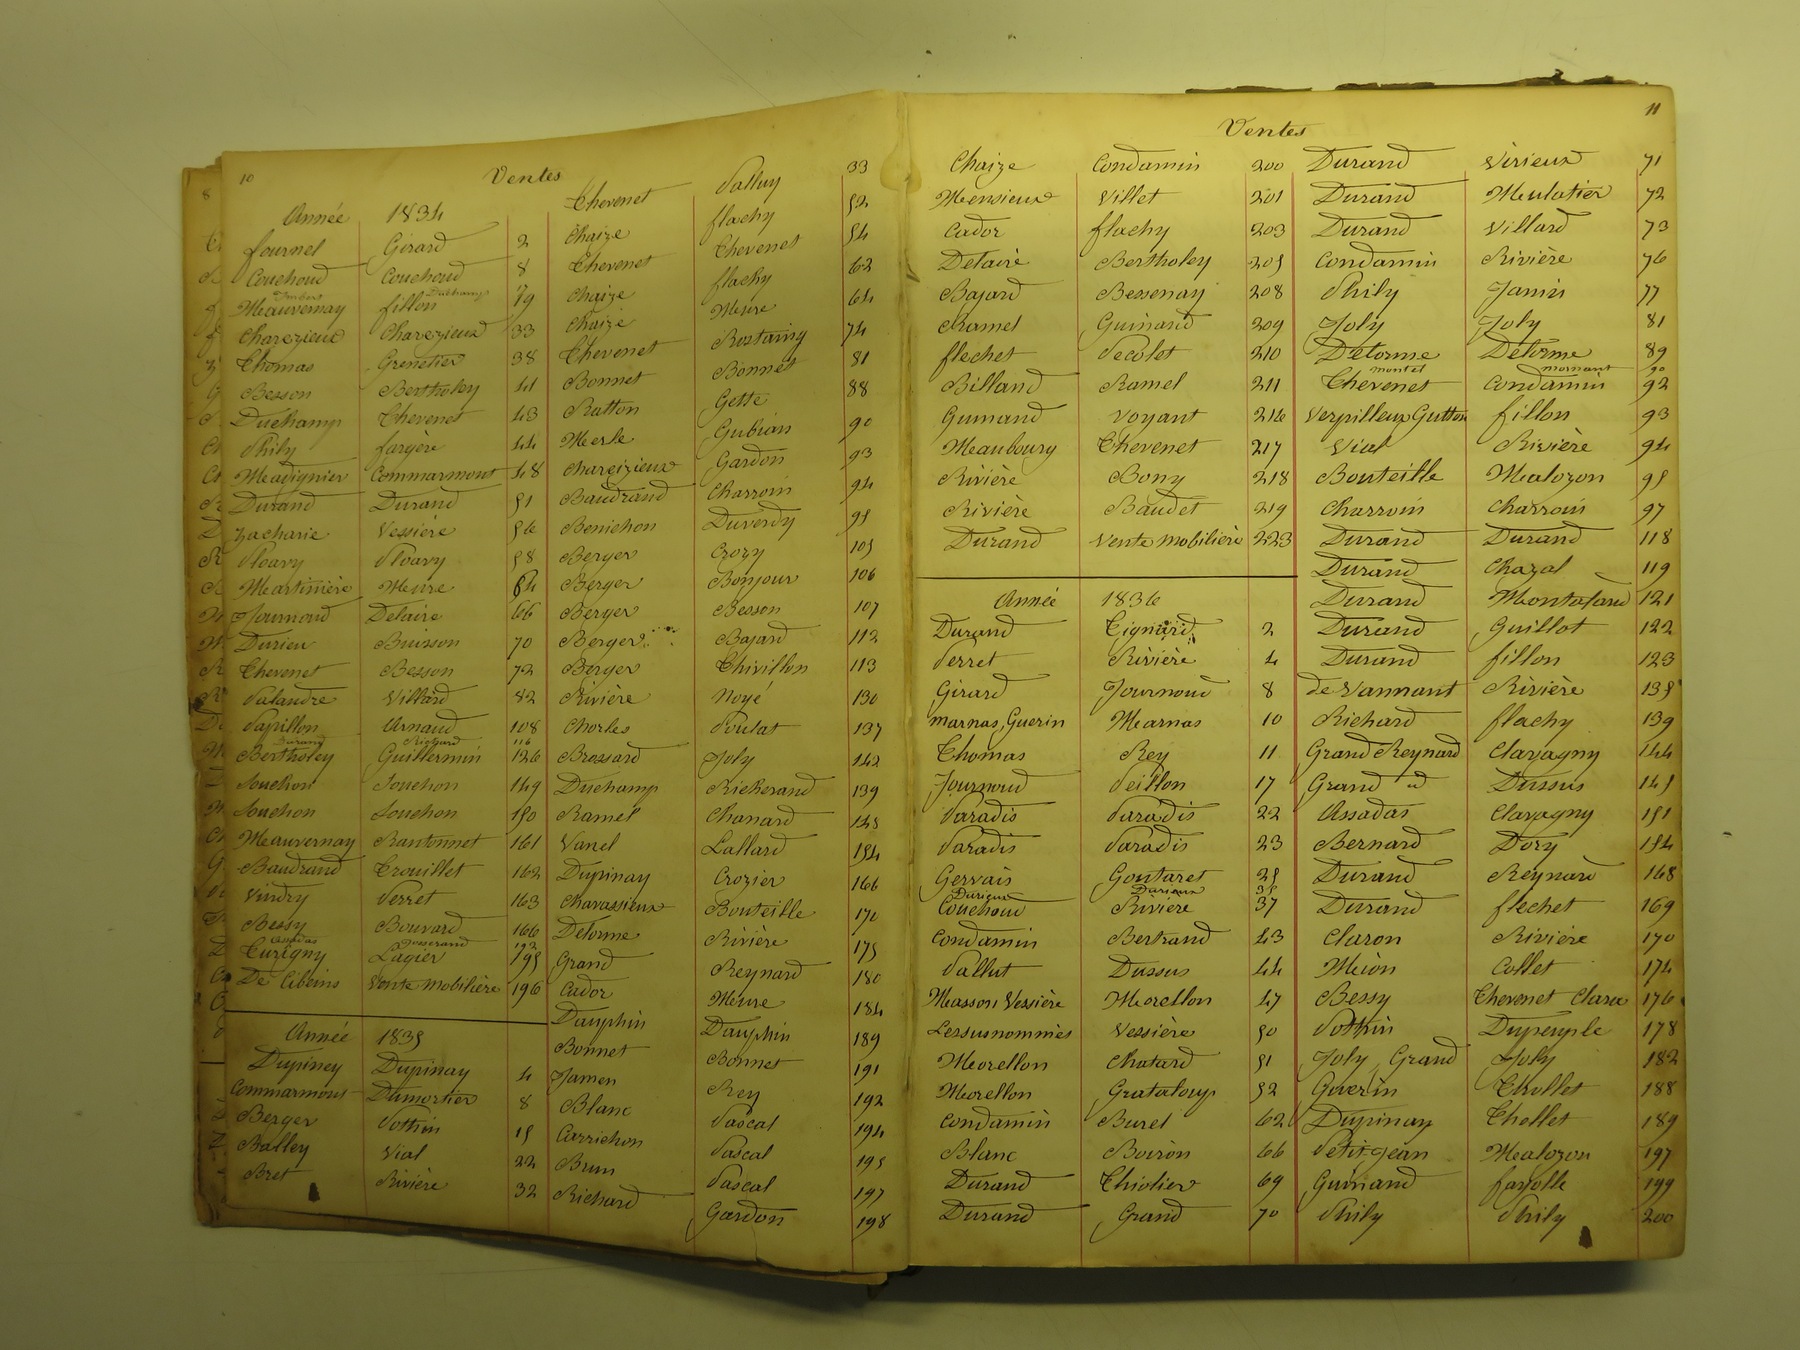 10
Ventes
Année 1834
fournel Girard 2
Couchoud Couchoud 8
Imbert Duchamp
Mauvernay fillon 19
Charezieux Charezieux 33
Thomas Grenetier 38
Besson Bertholey 41
Duchamp Chevenet 43
Phily fargère 44
Madignier Commarmont 48
Durand Durand 51
Zacharie Vessière 56
Ploavy Ploavy 58
Martinière Meure 64
Journoud Delaire 66
Durieu Buisson 70
Chevenet Besson 72
Palandre Villard 82
Papillon Arnaud 108
Durand Richard 116
Bertholey Guillermin 126
Souchon Souchon 149
Souchon Souchon 150
Mauvernay Rantonnet 161
Baudrand Trouillet 162
Vindry Perret 163
Bessy Bouvard 166
Assadas Josserand 193
Curzigny Lagier 195
De Cibeins Vente mobilière 196
Année 1835
Dupiney Dupinay 4
Commarmont Dumortier 8
Berger Pothin 15
Balley Vial 22
Bret Rivière 32
Chevenet Palluy 33
Chaize flachy 52
Chevenet Chevenet 54
Chaize flachy 62
Chaize Meure 64
Chevenet Rostaing 74
Bonnet Bonnet 81
Ratton Gette 88
Merle Gubian 90
Chareizieux Gardon 93
Baudrand Charroin 94
Benichon Duverdy 95
Berger Crozy 105
Berger Bonjour 106
Berger Besson 107
Berger Bajard 112
Berger Thivillon 113
Rivière Noyé 130
Charles Poulat 137
Brossard Joly 142
Duchamp Richerand 139
Ramel Chanard 148
Vanel Lallard 154
Dupinay Crozier 166
Chavassieux Bouteille 170
Delorme Rivière 175
Grand Reynard 180
Cador Meure 184
Dauphin Dauphin 189
Bonnet Bonnet 191
Jamen Rey 192
Blanc Pascal 194
Carrichon Pascal 195
Brun Pascal 197
Richard Gardon 198
11
Ventes
Chaize Condamin 200
Mensieux Villet 201
Cador flachy 203
Delaire Bertholey 205
Bajard Bessenay 208
Ramel Guinand 209
flechet Pecolet 210
Billand Ramel 211
Guinand Voyant 216
Mauboury Chevenet 217
Rivière Bony 218
Rivière Baudet 219
Durand Vente mobilière 223
Année 1836
Durand Tignard 2
Perret Rivière 4
Girard Journoud 8
Marnas, Guerin Marnas 10
Thomas Rey 11
Journoud Peillon 17
Paradis Paradis 22
Paradis Paradis 23
Gervais Goutaret 25
Durieux Durieux 35
Couchoud Rivière 37
Condamin Bertrand 43
Pallut Dussus 44
Masson Vessière Morellon 47
Lessusnommés Vessière 50
Morellon Chatard 51
Morellon Grataloup 52
Condamin Burel 62
Blanc Boiron 66
Durand Thiolier 69
Durand Grand 70
Durand Virieux 71
Durand Mulatier 72
Durand Villard 73
Condamin Rivière 76
Phily Janin 77
Joly Joly 81
Delorme Delorme 89
montel mornant 90
Chevenet Condamin 92
Verpilleux Gutton fillon 93
Vial Rivière 94
Bouteille Malozon 95
Charroin Charroin 97
Durand Durand 118
Durand Chazal 119
Durand Montaland 121
Durand Guillot 122
Durand fillon 123
de Vannant Rivière 135
Richard flachy 139
Grand Reynard Clavagny 144
Grand id Dussus 145
Assadas Clavagny 151
Bernard Dory 154
Durand Reynard 168
Durand flechet 169
Claron Rivière 170
Mion Collet 174
Bessy Chevenet Claron 176
Pothin Dupeuple 178
Joly, Grand Joly 182
Guerin Thollet 188
Dupinay Thollet 189
Petit-Jean Malozon 197
Guinand fayolle 199
Phily Phily 200